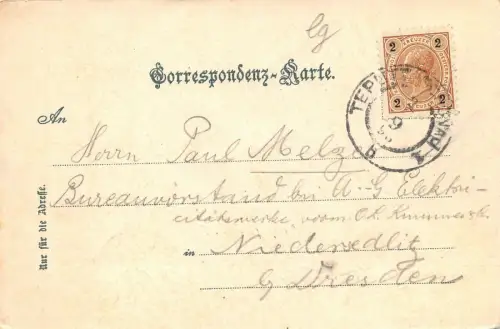 lg
2 2
KREUZER
2 2
TEPLITZ
Correspondenz-Karte.
An
Herrn Paul Melzer
Bureauvorstand bei A-G Elektri-
citätswerke vorm. O. L. Kummer & Co.
in Niedersedlitz
b/ Dresden
Nur für die Adresse.